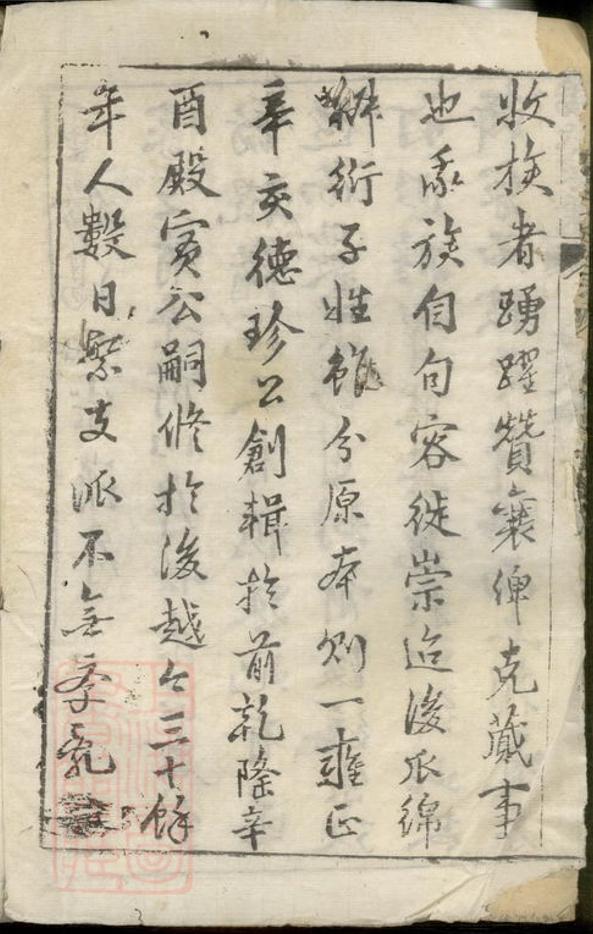 收族者踴躍贊襄俾克蕆事
也我族自句容徙崇迨後瓜綿
衍子姓雖分原本則一雍正
辛亥德珍公創輯於前乾隆辛
酉殿賓公嗣修於後越今三十餘
年人數日繁支派不無